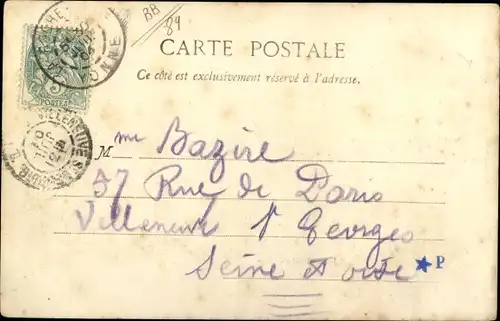 BB
84
CARTE POSTALE
Ce côté est exclusivement réservé à l'adresse.
5
POSTES
VILLENEUVE
Mme Bazire
37 Rue de Paris
Villeneuve St Georges
Seine et oise
P